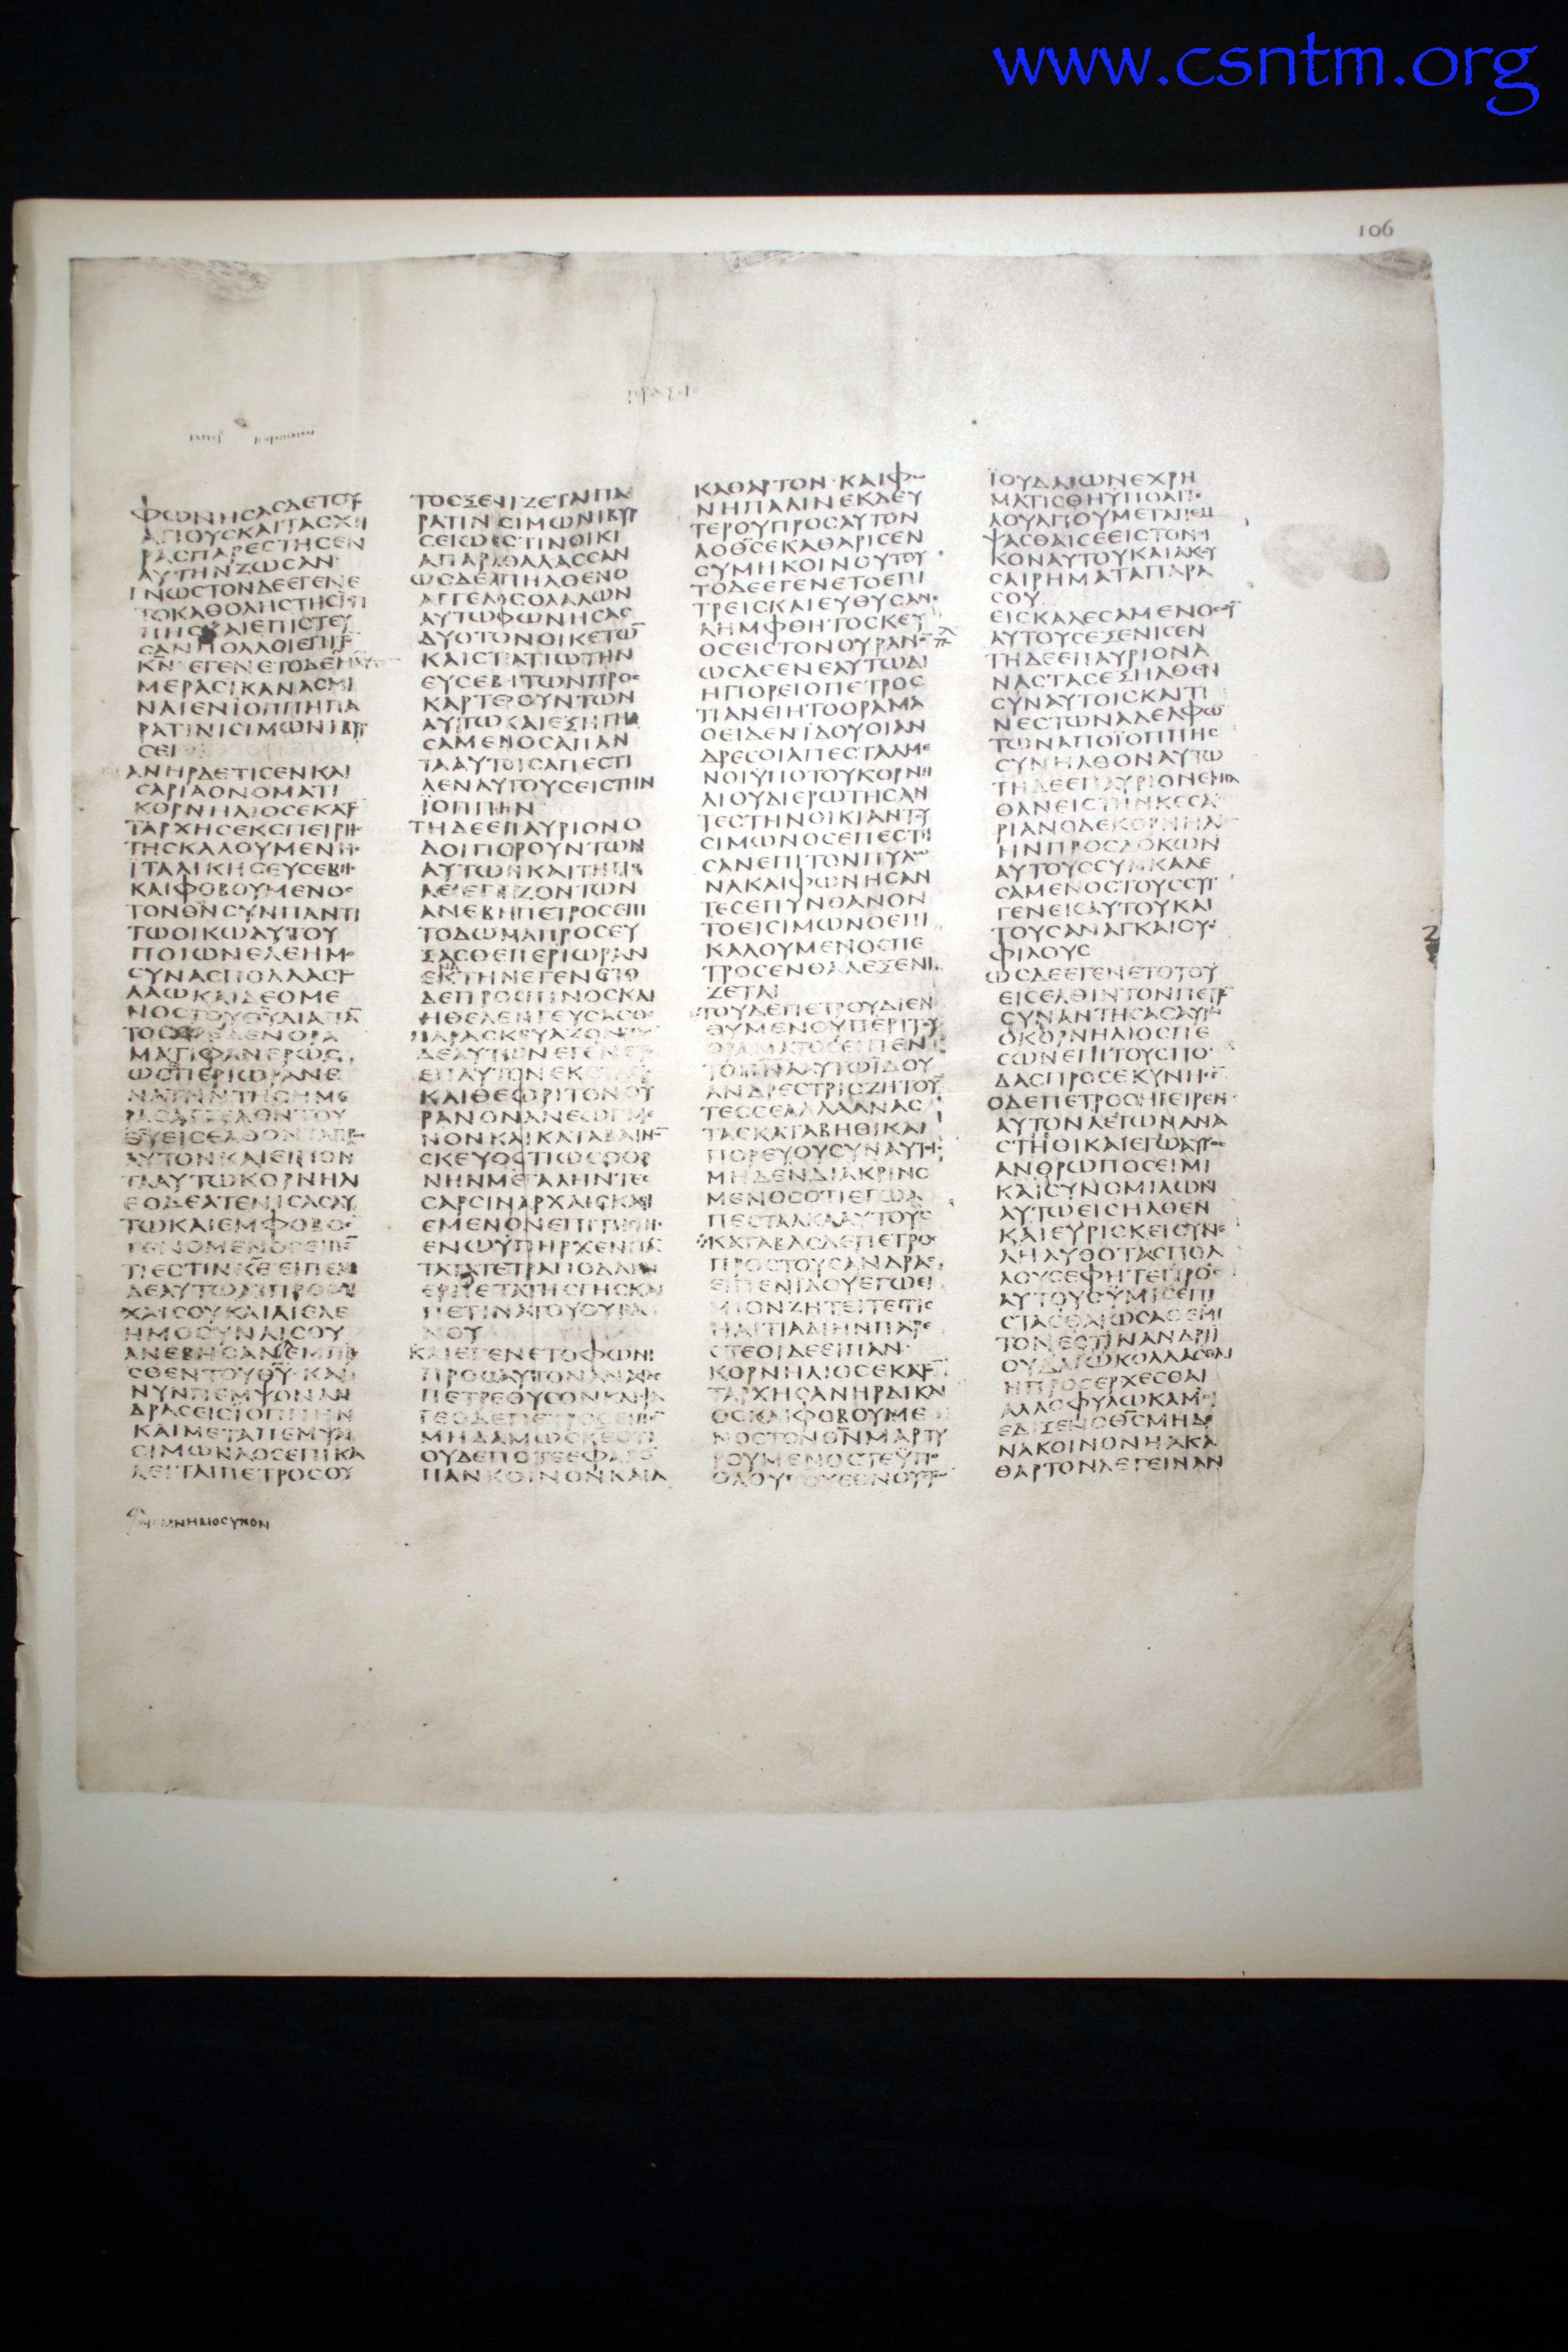 www.csntm.org
106
ΦΩΝΗΣΑΣΔΕΤΟΥΣ
ΑΓΙΟΥΣΚΑΙΤΑΣΧΗ
ΡΑΣΠΑΡΕΣΤΗΣΕΝ
ΑΥΤΗΝΖΩΣΑΝ
ΓΝΩΣΤΟΝΔΕΕΓΕΝΕ
ΤΟΚΑΘΟΛΗΣΤΗΣ
ΚΑΙΕΠΙΣΤΕΥ
ΣΑΝΠΟΛΛΟΙΕΠΙΤ
ΚΝ ΕΓΕΝΕΤΟΔΕ
ΜΕΡΑΣΙΚΑΝΑΣΜΙ
ΝΑΙΕΝΙΟΠΠΗΠΑ
ΡΑΤΙΝΙΣΙΜΩΝΙΒΥΡ
ΣΕΙ
ΑΝΗΡΔΕΤΙΣΕΝΚΑΙ
ΣΑΡΙΑΟΝΟΜΑΤΙ
ΚΟΡΝΗΛΙΟΣΕΚΑΤ
ΤΑΡΧΗΣΕΚΣΠΕΙΡΗ
ΤΗΣΚΑΛΟΥΜΕΝΗ
ΙΤΑΛΙΚΗΣΕΥΣΕΒΗ
ΚΑΙΦΟΒΟΥΜΕΝΟΣ
ΤΟΝΘΝΣΥΝΠΑΝΤΙ
ΤΩΟΙΚΩΑΥΤΟΥ
ΠΟΙΩΝΕΛΕΗΜ
ΣΥΝΑΣΠΟΛΛΑΣΤ
ΛΑΩΚΑΙΔΕΟΜΕ
ΝΟΣΤΟΥΘΥΔΙΑΠΑ
ΜΑΤΙΦΑΝΕΡΩΣ
ΩΣΠΕΡΙΩΡΑΝΕ
ΑΥΤΟΝΚΑΙΕΙΠΟΝ
ΤΑΑΥΤΩΚΟΡΝΗΛΙ
ΕΟΔΕΑΤΕΝΙΣΑΣΑΥ
ΤΩΚΑΙΕΜΦΟΒΟΣ
ΓΕΝΟΜΕΝΟΣΕΙΠΕ
ΤΙΕΣΤΙΝΚΕΕΙΠΕΝ
ΔΕΑΥΤΩΑΙΠΡΟΣΕΥ
ΧΑΙΣΟΥΚΑΙΑΙΕΛΕ
ΗΜΟΣΥΝΑΙΣΟΥ
ΑΝΕΒΗΣΑΝ
ΣΘΕΝΤΟΥΘΥ ΚΑΙ
ΝΥΝΠΕΜΨΟΝΑΝ
ΔΡΑΣΕΙΣΙΟΠΠΗΝ
ΚΑΙΜΕΤΑΠΕΜΨΑΙ
ΣΙΜΩΝΑΟΣΕΠΙΚΑ
ΛΕΙΤΑΙΠΕΤΡΟΣΟΥ
ΤΟΣΞΕΝΙΖΕΤΑΙΠΑ
ΡΑΤΙΝΙΣΙΜΩΝΙΒΥΡ
ΣΕΙΩΕΣΤΙΝΟΙΚΙ
ΑΠΑΡΑΘΑΛΑΣΣΑΝ
ΩΣΔΕΑΠΗΛΘΕΝΟ
ΑΓΓΕΛΟΣΟΛΑΛΩΝ
ΑΥΤΩΦΩΝΗΣΑΣ
ΔΥΟΤΩΝΟΙΚΕΤΩ
ΚΑΙΣΤΡΑΤΙΩΤΗΝ
ΕΥΣΕΒΗΤΩΝΠΡΟΣ
ΚΑΡΤΕΡΟΥΝΤΩΝ
ΑΥΤΩΚΑΙΕΞΗΓΗ
ΣΑΜΕΝΟΣΑΠΑΝ
ΤΑΑΥΤΟΙΣΑΠΕΣΤΙ
ΛΕΝΑΥΤΟΥΣΕΙΣΤΗΝ
ΙΟΠΠΗΝ
ΤΗΔΕΕΠΑΥΡΙΟΝΟ
ΔΟΙΠΟΡΟΥΝΤΩΝ
ΑΥΤΩΝΚΑΙΤΗΠΟ
ΛΕΙΕΓΓΙΖΟΝΤΩΝ
ΑΝΕΒΗΠΕΤΡΟΣΕΠΙ
ΤΟΔΩΜΑΠΡΟΣΕΥ
ΞΑΣΘΕΠΕΡΙΩΡΑΝ
ΕΚΤΗΝΕΓΕΝΕΤΟ
ΔΕΠΡΟΣΠΙΝΟΣΚΑΙ
ΗΘΕΛΕΝΓΕΥΣΑΣΘΕ
ΠΑΡΑΣΚΕΥΑΖΟΝΤΩ
ΔΕΑΥΤΩΝΕΓΕΝΕΤ
ΚΑΙΘΕΩΡΙΤΟΝΟΥ
ΡΑΝΟΝΑΝΕΩΓΜΕ
ΝΟΝΚΑΙΚΑΤΑΒΑΙΝ
ΣΚΕΥΟΣΤΙΩΣΟΘΟ
ΝΗΝΜΕΓΑΛΗΝΤΕΣ
ΣΑΡΣΙΝΑΡΧΑΙΣΚΑΘΙ
ΕΜΕΝΟΝΕΠΙΤΗΣΓΗ
ΕΝΩΥΠΗΡΧΕΝΠΑ
ΤΑΤΑΤΕΤΡΑΠΟΔΑΚΑΙ
ΕΡΠΕΤΑΤΗΣΓΗΣΚΑΙ
ΠΕΤΙΝΑΤΟΥΟΥΡΑ
ΝΟΥ
ΚΑΙΕΓΕΝΕΤΟΦΩΝΗ
ΠΡΟΣΑΥΤΟΝΑΝΑΣΤΑ
ΠΕΤΡΕΘΥΣΟΝΚΑΙΦΑ
ΓΕΟΔΕΠΕΤΡΟΣΕΙΠΕ
ΜΗΔΑΜΩΣΚΕΟΤΙ
ΟΥΔΕΠΟΤΕΕΦΑΓΟ
ΠΑΝΚΟΙΝΟΝΚΑΙΑ
ΚΑΘΑΡΤΟΝ ΚΑΙΦΩ
ΝΗΠΑΛΙΝΕΚΔΕΥ
ΤΕΡΟΥΠΡΟΣΑΥΤΟΝ
ΑΟΘΣΕΚΑΘΑΡΙΣΕΝ
ΣΥΜΗΚΟΙΝΟΥΤΟΥ
ΤΟΔΕΕΓΕΝΕΤΟΕΠΙ
ΤΡΕΙΣΚΑΙΕΥΘΥΣΑΝΕ
ΛΗΜΦΘΗΤΟΣΚΕΥ
ΟΣΕΙΣΤΟΝΟΥΡΑΝΟ
ΩΣΔΕΕΝΕΑΥΤΩΔΙ
ΗΠΟΡΕΙΟΠΕΤΡΟΣ
ΤΙΑΝΕΙΗΤΟΟΡΑΜΑ
ΟΕΙΔΕΝΙΔΟΥΟΙΑΝ
ΔΡΕΣΟΙΑΠΕΣΤΑΛΜΕ
ΝΟΙΥΠΟΤΟΥΚΟΡΝΗ
ΛΙΟΥΔΙΕΡΩΤΗΣΑΝ
ΤΕΣΤΗΝΟΙΚΙΑΝΤΟΥ
ΣΙΜΩΝΟΣΕΠΕΣΤΗ
ΣΑΝΕΠΙΤΟΝΠΥΛΩ
ΝΑΚΑΙΦΩΝΗΣΑΝ
ΤΕΣΕΠΥΝΘΑΝΟΝ
ΤΟΕΙΣΙΜΩΝΟΕΠΙ
ΚΑΛΟΥΜΕΝΟΣΠΕ
ΤΡΟΣΕΝΘΑΔΕΞΕΝΙ
ΖΕΤΑΙ
ΤΟΥΔΕΠΕΤΡΟΥΔΙΕΝ
ΘΥΜΕΝΟΥΠΕΡΙΤΟΥ
ΑΝΔΡΕΣΤΡΙΣΖΗΤΟΥ
ΤΕΣΣΕΑΛΛΑΑΝΑΣ
ΤΑΣΚΑΤΑΒΗΘΙΚΑΙ
ΠΟΡΕΥΟΥΣΥΝΑΥΤΟΙ
ΜΗΔΕΝΔΙΑΚΡΙΝΟ
ΜΕΝΟΣΟΤΙΕΓΩΑ
ΠΕΣΤΑΛΚΑΑΥΤΟΥΣ
ΚΑΤΑΒΑΣΔΕΠΕΤΡΟΣ
ΠΡΟΣΤΟΥΣΑΝΔΡΑΣ
ΕΙΠΕΝΙΔΟΥΕΓΩΕΙ
ΜΙΟΝΖΗΤΕΙΤΕΤΙΣ
ΗΑΙΤΙΑΔΙΗΝΠΑΡΕ
ΣΤΕΟΙΔΕΕΙΠΑΝ
ΚΟΡΝΗΛΙΟΣΕΚΑΤ
ΤΑΡΧΗΣΑΝΗΡΔΙΚΑΙ
ΟΣΚΑΙΦΟΒΟΥΜΕ
ΝΟΣΤΟΝΘΝΜΑΡΤΥ
ΡΟΥΜΕΝΟΣΤΕΥΠ
ΟΛΟΥΤΟΥΕΘΝΟΥΣΤ
ΙΟΥΔΑΙΩΝΕΧΡΗ
ΜΑΤΙΣΘΗΥΠΟΑΓΓΕ
ΛΟΥΑΓΙΟΥΜΕΤΑΠΕΜ
ΨΑΣΘΑΙΣΕΕΙΣΤΟΝΟΙ
ΚΟΝΑΥΤΟΥΚΑΙΑΚΟΥ
ΣΑΙΡΗΜΑΤΑΠΑΡΑ
ΣΟΥ
ΕΙΣΚΑΛΕΣΑΜΕΝΟΣ
ΑΥΤΟΥΣΕΞΕΝΙΣΕΝ
ΤΗΔΕΕΠΑΥΡΙΟΝΑ
ΝΑΣΤΑΣΕΞΗΛΘΕΝ
ΣΥΝΑΥΤΟΙΣΚΑΙΤΙ
ΝΕΣΤΩΝΑΔΕΛΦΩ
ΤΩΝΑΠΟΙΟΠΠΗΣ
ΣΥΝΗΛΘΟΝΑΥΤΩ
ΤΗΔΕΕΠΑΥΡΙΟΝΕΙΣΗΛ
ΘΑΝΕΙΣΤΗΝΚΕΣΑ
ΡΙΑΝΟΔΕΚΟΡΝΗΛΙ
ΗΝΠΡΟΣΔΟΚΩΝ
ΑΥΤΟΥΣΣΥΝΚΑΛΕ
ΣΑΜΕΝΟΣΤΟΥΣΣΥΓ
ΓΕΝΕΙΣΑΥΤΟΥΚΑΙ
ΤΟΥΣΑΝΑΓΚΑΙΟΥΣ
ΦΙΛΟΥΣ
ΩΣΔΕΕΓΕΝΕΤΟΤΟΥ
ΕΙΣΕΛΘΙΝΤΟΝΠΕΤΡ
ΣΥΝΑΝΤΗΣΑΣΑΥΤΩ
ΟΚΟΡΝΗΛΙΟΣΠΕ
ΣΩΝΕΠΙΤΟΥΣΠΟ
ΔΑΣΠΡΟΣΕΚΥΝΗΣ
ΟΔΕΠΕΤΡΟΣΗΓΕΙΡΕΝ
ΑΥΤΟΝΛΕΓΩΝΑΝΑ
ΣΤΗΘΙΚΑΙΕΓΩΑΥΤΟΣ
ΑΝΘΡΩΠΟΣΕΙΜΙ
ΚΑΙΣΥΝΟΜΙΛΩΝ
ΑΥΤΩΕΙΣΗΛΘΕΝ
ΚΑΙΕΥΡΙΣΚΕΙΣΥΝΕ
ΛΗΛΥΘΟΤΑΣΠΟΛ
ΛΟΥΣΕΦΗΤΕΠΡΟΣ
ΑΥΤΟΥΣΥΜΙΣΕΠΙ
ΣΤΑΣΘΑΙΩΣΑΘΕΜΙ
ΤΟΝΕΣΤΙΝΑΝΔΡΙΙ
ΟΥΔΑΙΩΚΟΛΛΑΣΘΑΙ
ΗΠΡΟΣΕΡΧΕΣΘΑΙ
ΑΛΛΟΦΥΛΩΚΑΜΟΙ
ΕΔΙΞΕΝΟΘΣΜΗΔΕ
ΝΑΚΟΙΝΟΝΗΑΚΑ
ΘΑΡΤΟΝΛΕΓΕΙΝΑΝ